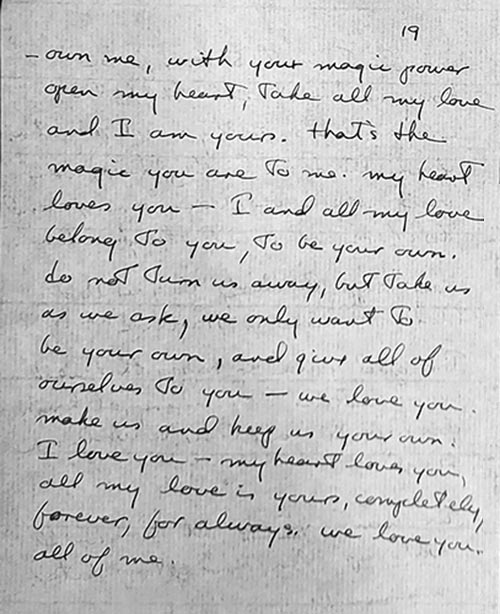 19
- own me, with your magic power
open my heart, Take all my love
and I am yours. that's the
magic you are To me. my heart
loves you - I and all my love
belong To you, To be your own.
do not Turn us away, but Take us
as we ask, we only want To
be your own, and give all of
ourselves To you - we love you.
make us and keep us your own.
I love you - my heart loves you,
all my love is yours, completely,
forever, for always. we love you.
all of me.